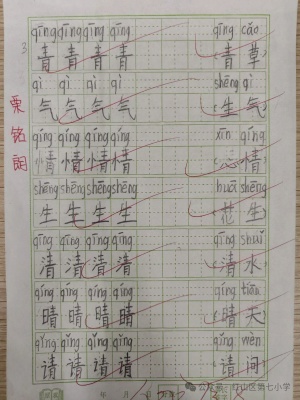 qīng qīng qīng qīng qīng cǎo
青 青 青 青 (青草)
qì qì qì qì shēng qì
气 气 气 气 (生气)
qíng qíng qíng qíng xīn qíng
情 情 情 情 (心情)
shēng shēng shēng shēng huā shēng
生 生 生 生 (花生)
qīng qīng qīng qīng qīng shuǐ
清 清 清 清 (清水)
qíng qíng qíng qíng qíng tiān
晴 晴 晴 晴 (晴天)
qǐng qǐng qǐng qǐng qǐng wèn
请 请 请 请 (请问)
年 月